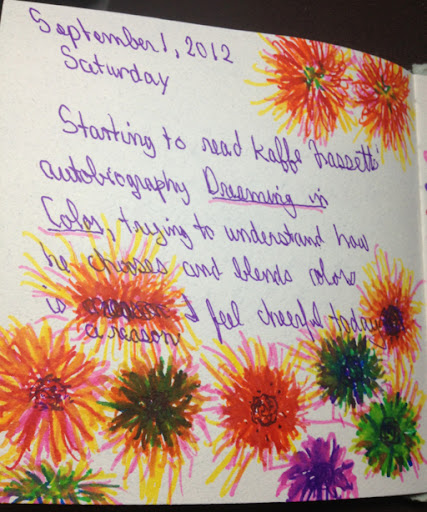 September 1, 2012
Saturday
Starting to read Kaffe Fassett's
autobiography Dreaming in
Color, trying to understand how
he chooses and blends colors
is I feel cheerful today
a reason